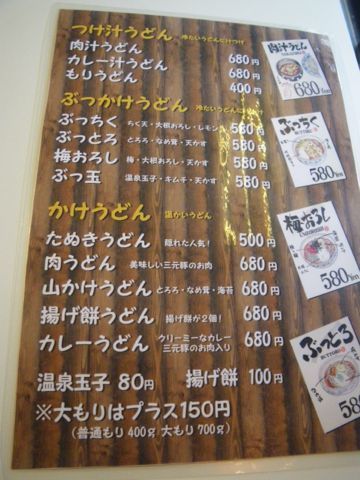 つけ汁うどん 冷たいうどんに汁つけ
肉汁うどん 680円
カレー汁うどん 680円
もりうどん 400円
ぶっかけうどん 冷たいうどんに汁かけ
ぶっちく ちく天・大根おろし・レモン 580円
ぶっとろ とろろ・なめ茸・天かす 580円
梅おろし 梅・大根おろし・天かす 580円
ぶっ玉 温泉玉子・キムチ・天かす 580円
かけうどん 温かいうどん
たぬきうどん 隠れた人気! 500円
肉うどん 美味しい三元豚のお肉 680円
山かけうどん とろろ・なめ茸・海苔 680円
揚げ餅うどん 揚げ餅が2個! 680円
カレーうどん クリーミーなカレー
三元豚のお肉入り 680円
温泉玉子 80円 揚げ餅 100円
※大もりはプラス150円
(普通もり400g 大もり700g)
肉汁うどん
680
ぶっちく
580
梅おろし
580
ぶっとろ
580